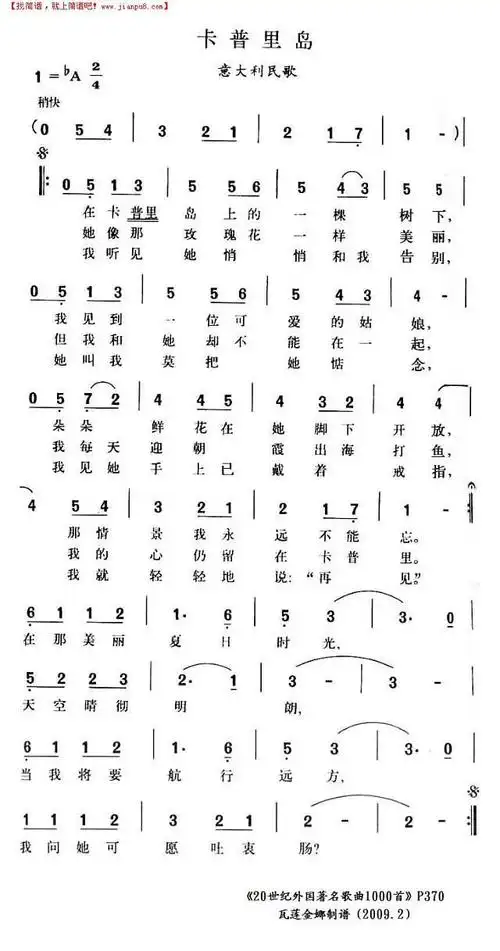 【找简谱，就上简谱吧！www.jianpu8.com】
卡普里岛
1=♭A 2/4
意大利民歌
稍快
(0 5 4 | 3 2 1 | 2 1 7 | 1 - )
‖: 0 5 1 3 | 5 5 6 | 5 4 3 | 5 5 |
在卡普里 岛上的 一棵 树下，
她像那 玫瑰花 一样 美丽，
我听见 她悄 悄和我 告别，
0 5 1 3 | 5 5 6 | 5 4 3 | 5 5 |
我见到 一位可 爱的姑 娘，
但我和 她却不 能在一 起，
她叫我 莫把 她惦 念，
0 5 7 2 | 4 4 5 | 4 3 2 | 4 4 |
朵朵 鲜花在 她脚下 开放，
我每天 迎朝 霞出海 打鱼，
我见她 手上已 戴着 戒指，
4 5 4 | 3 2 1 | 2 1 7 | 1 - :‖
那情 景我永 远不能 忘。
我的 心仍留 在卡普 里。
我就 轻轻地 说：“再 见。”
6 1 1 2 | 1· 6 | 5 3 | 3· 0 |
在那美丽 夏日 时光，
5 2 2 3 | 2· 1 | 3 - | 3 - |
天空晴彻 明 朗，
6 1 1 2 | 1· 6 | 5 3 | 3· 0 |
当我将要 航行 远方，
1 1 1 2 | 3 2 1 | 2 - | 5 - ‖
我问她可 愿吐衷 肠？
《20世纪外国著名歌曲1000首》P370
瓦莲金娜制谱（2009.2）